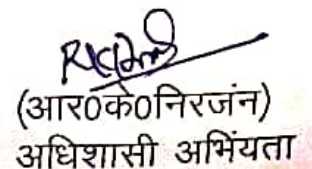 (आर0के0निरजंन)
अधिशासी अभिंयता